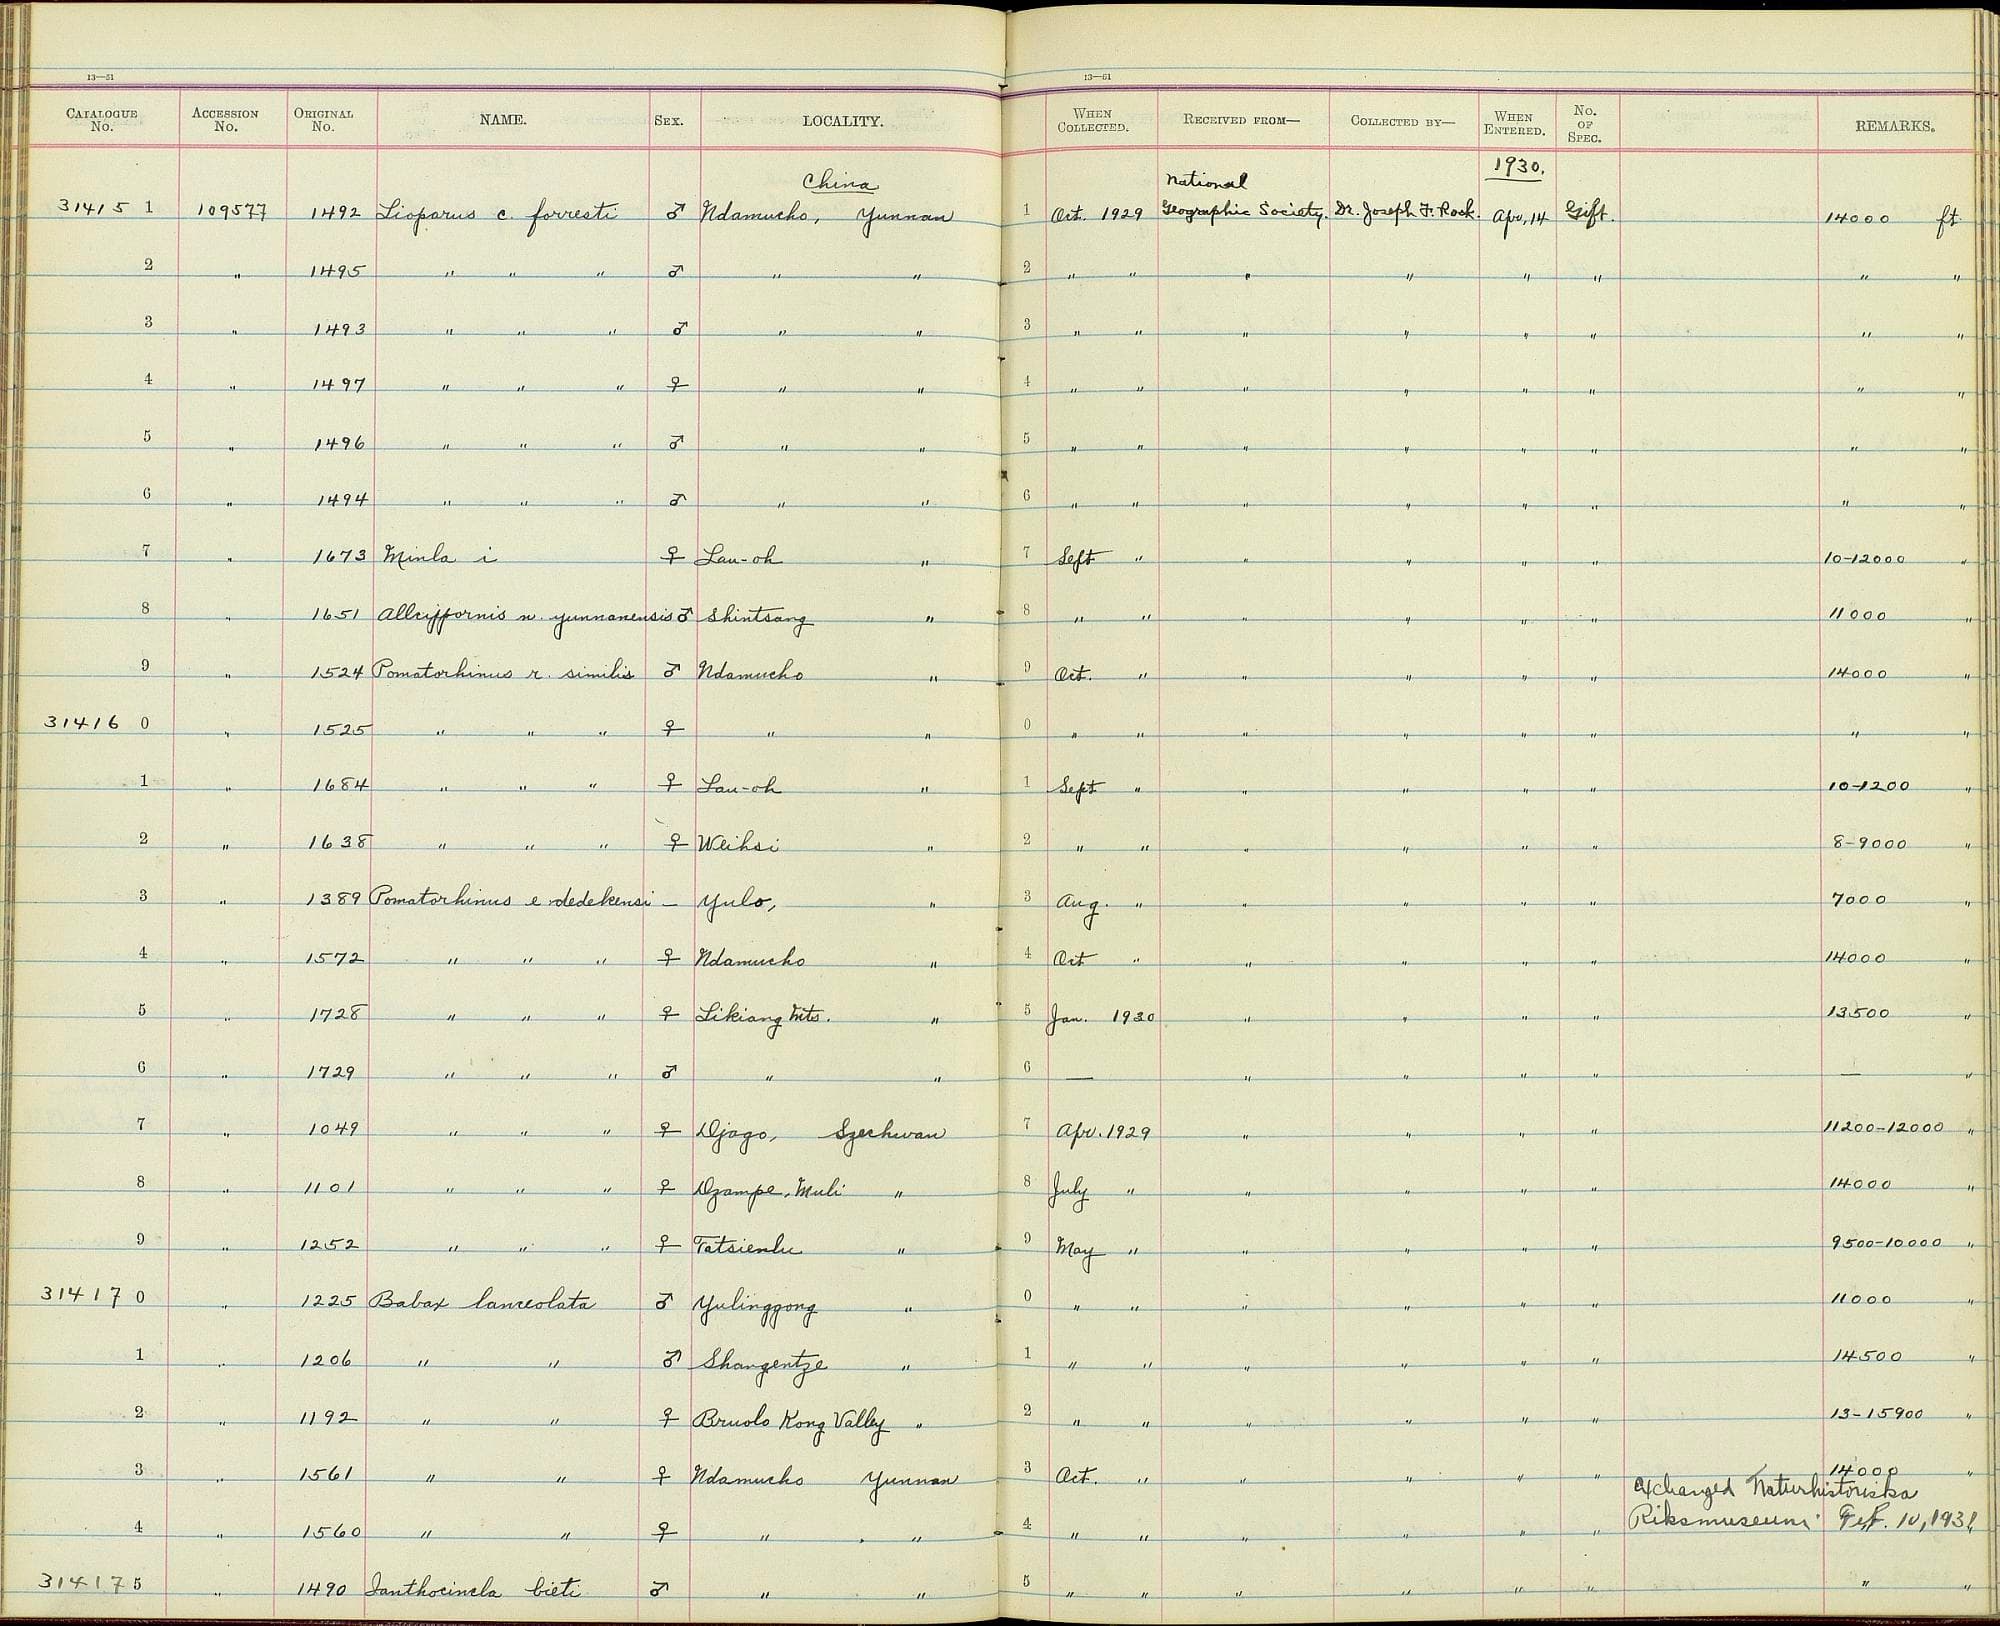 13—51
13—51
CATALOGUE No. ACCESSION No. ORIGINAL No. NAME. SEX. LOCALITY. WHEN COLLECTED. RECEIVED FROM— COLLECTED BY— WHEN ENTERED. No. OF SPEC. REMARKS.
China National 1930.
31415 1 109577 1492 Lioparus c. forresti ♂ Ndamucho, Yunnan 1 Oct. 1929 Geographic Society. Dr. Joseph F. Rock. Apr. 14 Gift. 14000 ft
2 " 1495 " " " ♂ " " 2 " " " " " " " "
3 " 1493 " " " ♂ " " 3 " " " " " " " "
4 " 1497 " " " ♀ " " 4 " " " " " " " "
5 " 1496 " " " ♂ " " 5 " " " " " " " "
6 " 1494 " " " ♂ " " 6 " " " " " " " "
7 " 1673 Minla i ♀ Lau-oh " 7 Sept " " " " " 10-12000 "
8 " 1651 Alcippornis n. yunnanensis ♂ Shintsang " 8 " " " " " " 11000 "
9 " 1524 Pomatorhinus r. similis ♂ Ndamucho " 9 Oct. " " " " " 14000 "
31416 0 " 1525 " " " ♀ " " 0 " " " " " " " "
1 " 1684 " " " ♀ Lau-oh " 1 Sept " " " " " 10-1200 "
2 " 1638 " " " ♀ Weihsi " 2 " " " " " " 8-9000 "
3 " 1389 Pomatorhinus e dedekensi — Yulo, " 3 Aug. " " " " " 7000 "
4 " 1572 " " " ♀ Ndamucho " 4 Oct " " " " " 14000 "
5 " 1728 " " " ♀ Likiang Mts. " 5 Jan. 1930 " " " " 13500 "
6 " 1729 " " " ♂ " " 6 — " " " " — "
7 " 1049 " " " ♀ Djago, Szechwan 7 Apr. 1929 " " " " 11200-12000 "
8 " 1101 " " " ♀ Dzampe, Muli " 8 July " " " " " 14000 "
9 " 1252 " " " ♀ Tatsienlu " 9 May " " " " " 9500-10000 "
31417 0 " 1225 Babax lanceolata ♂ Yulinggong " 0 " " " " " " 11000 "
1 " 1206 " " ♂ Shangentze " 1 " " " " " " 14500 "
2 " 1192 " " ♀ Bruolo Kong Valley " 2 " " " " " " 13-15900 "
3 " 1561 " " ♀ Ndamucho Yunnan 3 Oct. " " " " " 14000 "
exchanged Naturhistoriska
4 " 1560 " " ♀ " " 4 " " " " " " Riksmuseum Feb. 10, 1931
31417 5 " 1490 Ianthocincla bieti ♂ " " 5 " " " " " " " "